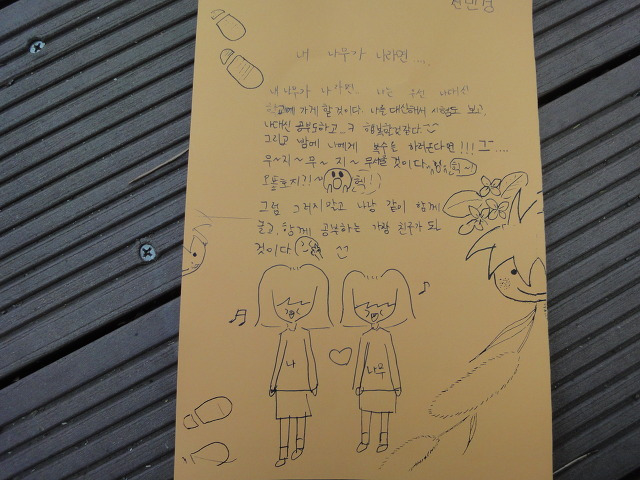 내 나무가 나라면...
내 나무가 나라면.. 나는 우선 나대신
학교에 가게 할 것이다. 나을 대신해서 시험도 보고,
나대신 공부도하고..ㅋ 행복할것같다
그리고 밤에 나에게 복수를 하려온다면!!!
무~지~무~지~ 무서울 것이다
헉~!
오돌토지?!~
헉!
그럼 그러지말고 나랑 같이 함께
놀고, 함께 공부하는 가장 친구가 되
것이다
나
나무